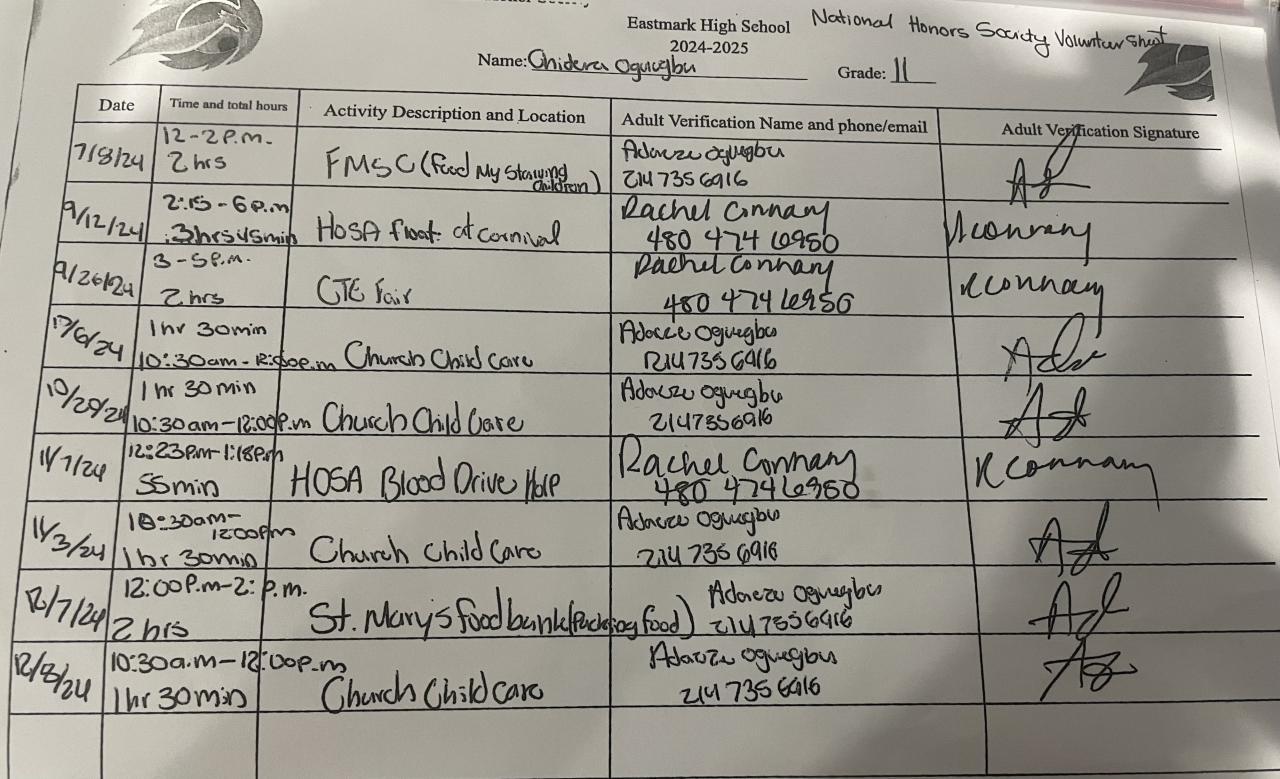 Eastmark High School
National Honors Society Volunteer Sheet
2024-2025
Name: Chidera Oguegbu
Grade: 11
Date
Time and total hours
Activity Description and Location
Adult Verification Name and phone/email
Adult Verification Signature
7/8/24
12-2P.m.
2 hrs
FMSC (Feed My Starving
Children)
Adaeze Oguegbu
214 735 6916
9/12/24
2:15-6p.m
3hrs45min
HOSA float at carnival
Rachel Connany
480 474 6950
RConnany
9/26/24
3-5P.m.
2 hrs
CTE Fair
Rachel Connany
480 474 6950
RConnany
1hr 30min
10:30am-12:00p.m
Church Child Care
Adaeze Oguegbu
214 735 6916
10/20/24
1 hr 30min
10:30am-12:00P.m
Church Child Care
Adaeze Oguegbu
2147356916
11/7/24
12:23Pm-1:18Pm
55min
HOSA Blood Drive Help
Rachel Connany
480 474 6950
R Connany
11/3/24
10:30am-
12:00pm
1hr 30min
Church Child Care
Adaeze Oguegbu
214 735 6916
12/7/24
12:00P.m-2: p.m.
2 hrs
St. Mary's foodbank (Packing food)
Adaeze Oguegbu
2147356916
12/8/24
10:30a.m-12:00p.m
1hr 30min
Church Child care
Adaeze Oguegbu
214 735 6916